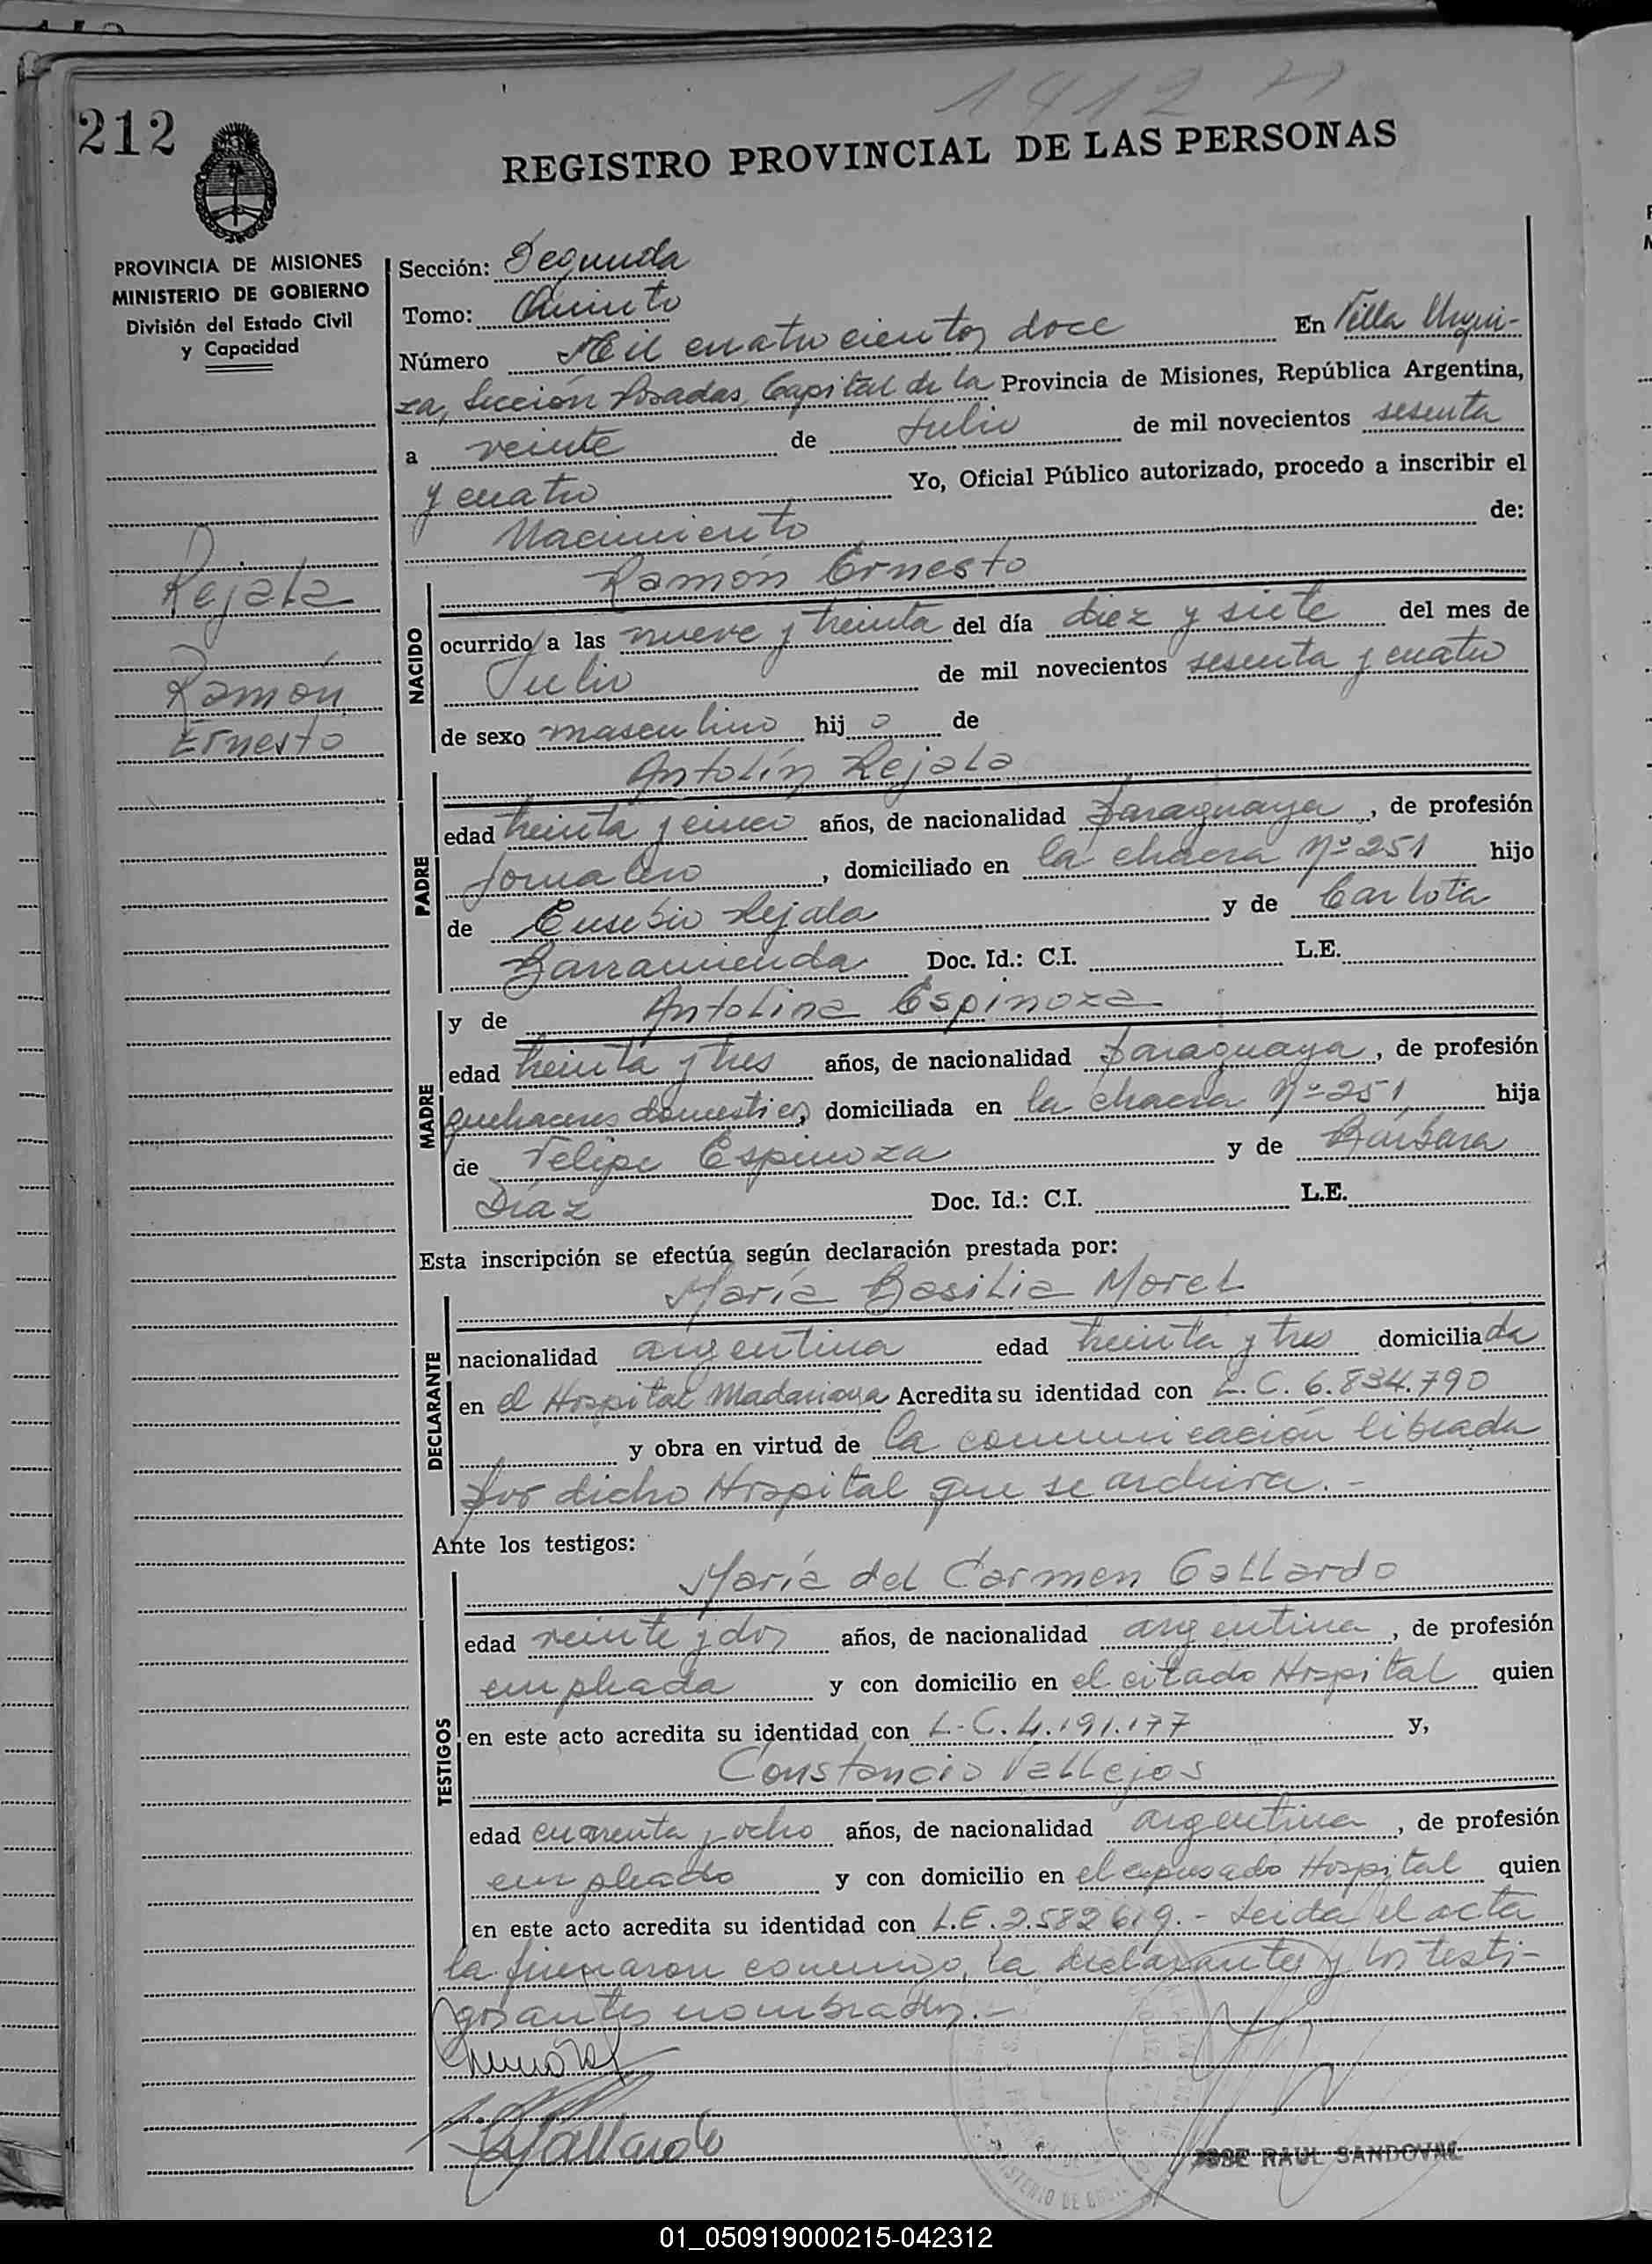 1412
212
REGISTRO PROVINCIAL DE LAS PERSONAS
PROVINCIA DE MISIONES
MINISTERIO DE GOBIERNO
División del Estado Civil
y Capacidad
Rejala
Ramón
Ernesto
Sección: Segunda
Tomo: Quinto
Número Mil cuatrocientos doce En Villa Urqui-
za, Sección Posadas, Capital de la Provincia de Misiones, República Argentina,
a veinte de Julio de mil novecientos sesenta
y cuatro Yo, Oficial Público autorizado, procedo a inscribir el
Nacimiento de:
NACIDO
Ramón Ernesto
ocurrido a las nueve y treinta del día diez y siete del mes de
Julio de mil novecientos sesenta y cuatro
de sexo masculino hijo de
PADRE
Antolín Rejala
edad treinta y cinco años, de nacionalidad paraguaya, de profesión
jornalero, domiciliado en la chacra Nº 251 hijo
de Eusebio Rejala y de Carlota
Barramienda Doc. Id.: C.I. L.E.
MADRE
y de Antolina Espinoza
edad treinta y tres años, de nacionalidad paraguaya, de profesión
quehaceres domésticos, domiciliada en la chacra Nº 251 hija
de Felipe Espinoza y de Bárbara
Díaz Doc. Id.: C.I. L.E.
Esta inscripción se efectúa según declaración prestada por:
DECLARANTE
María Basilia Morel
nacionalidad argentina edad treinta y tres domiciliada
en el Hospital Madariaga Acredita su identidad con L.C. 6.834.790
y obra en virtud de la comunicación librada
por dicho Hospital que se archiva.-
Ante los testigos:
TESTIGOS
María del Carmen Gallardo
edad veinte y dos años, de nacionalidad argentina, de profesión
empleada y con domicilio en el citado Hospital quien
en este acto acredita su identidad con L.C. 4.191.177 y,
Constancio Vallejos
edad cuarenta y ocho años, de nacionalidad argentina, de profesión
empleado y con domicilio en el expresado Hospital quien
en este acto acredita su identidad con L.E. 2.582619.- Leída el acta
la firmaron conmigo, la declarante y los testi-
gos antes nombrados.-
Gallardo
JOSE RAUL SANDOVAL
01_050919000215-042312